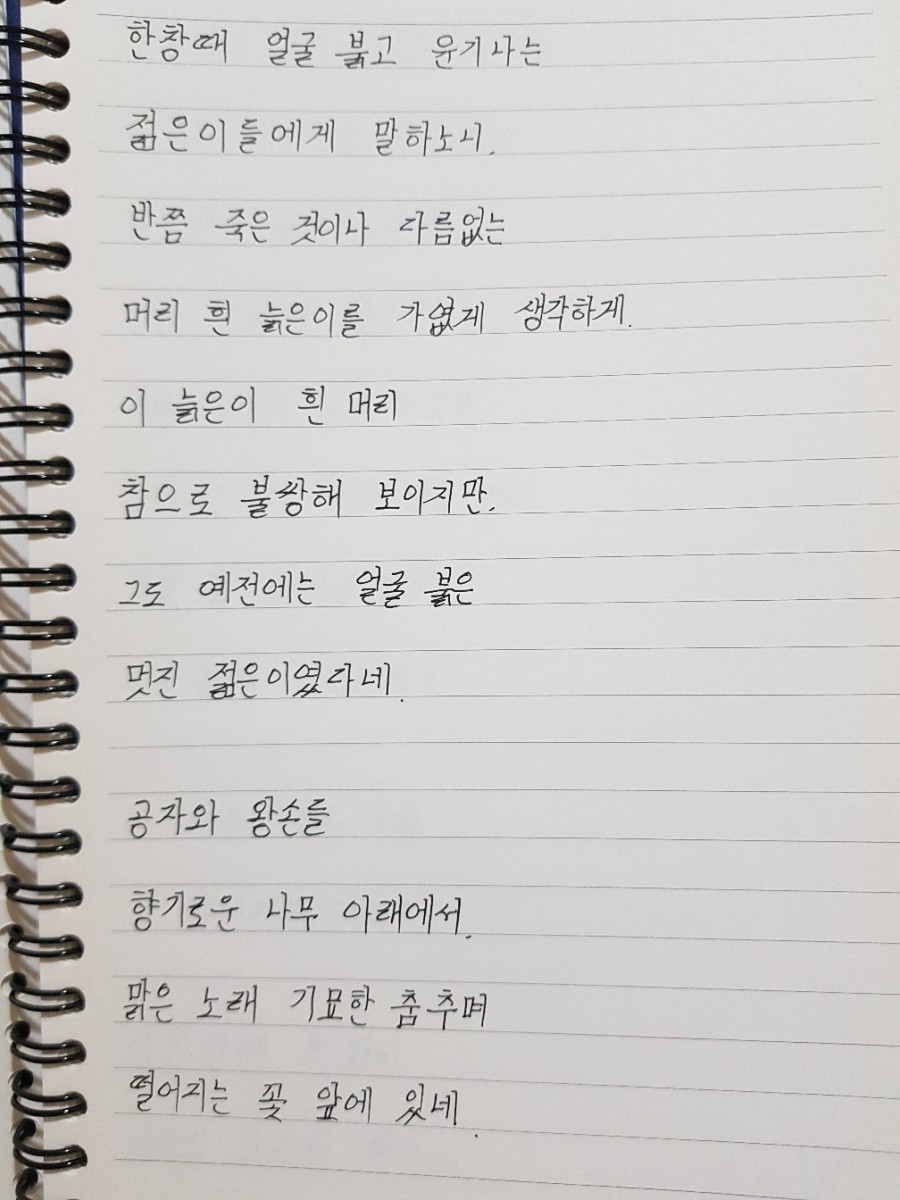 한창때 얼굴 붉고 윤기나는
젊은이들에게 말하노니.
반쯤 죽은 것이나 다름없는
머리 흰 늙은이를 가엾게 생각하게.
이 늙은이 흰 머리
참으로 불쌍해 보이지만.
그도 예전에는 얼굴 붉은
멋진 젊은이였다네.
공자와 왕손들
향기로운 나무 아래에서.
맑은 노래 기묘한 춤추며
떨어지는 꽃 앞에 있네.